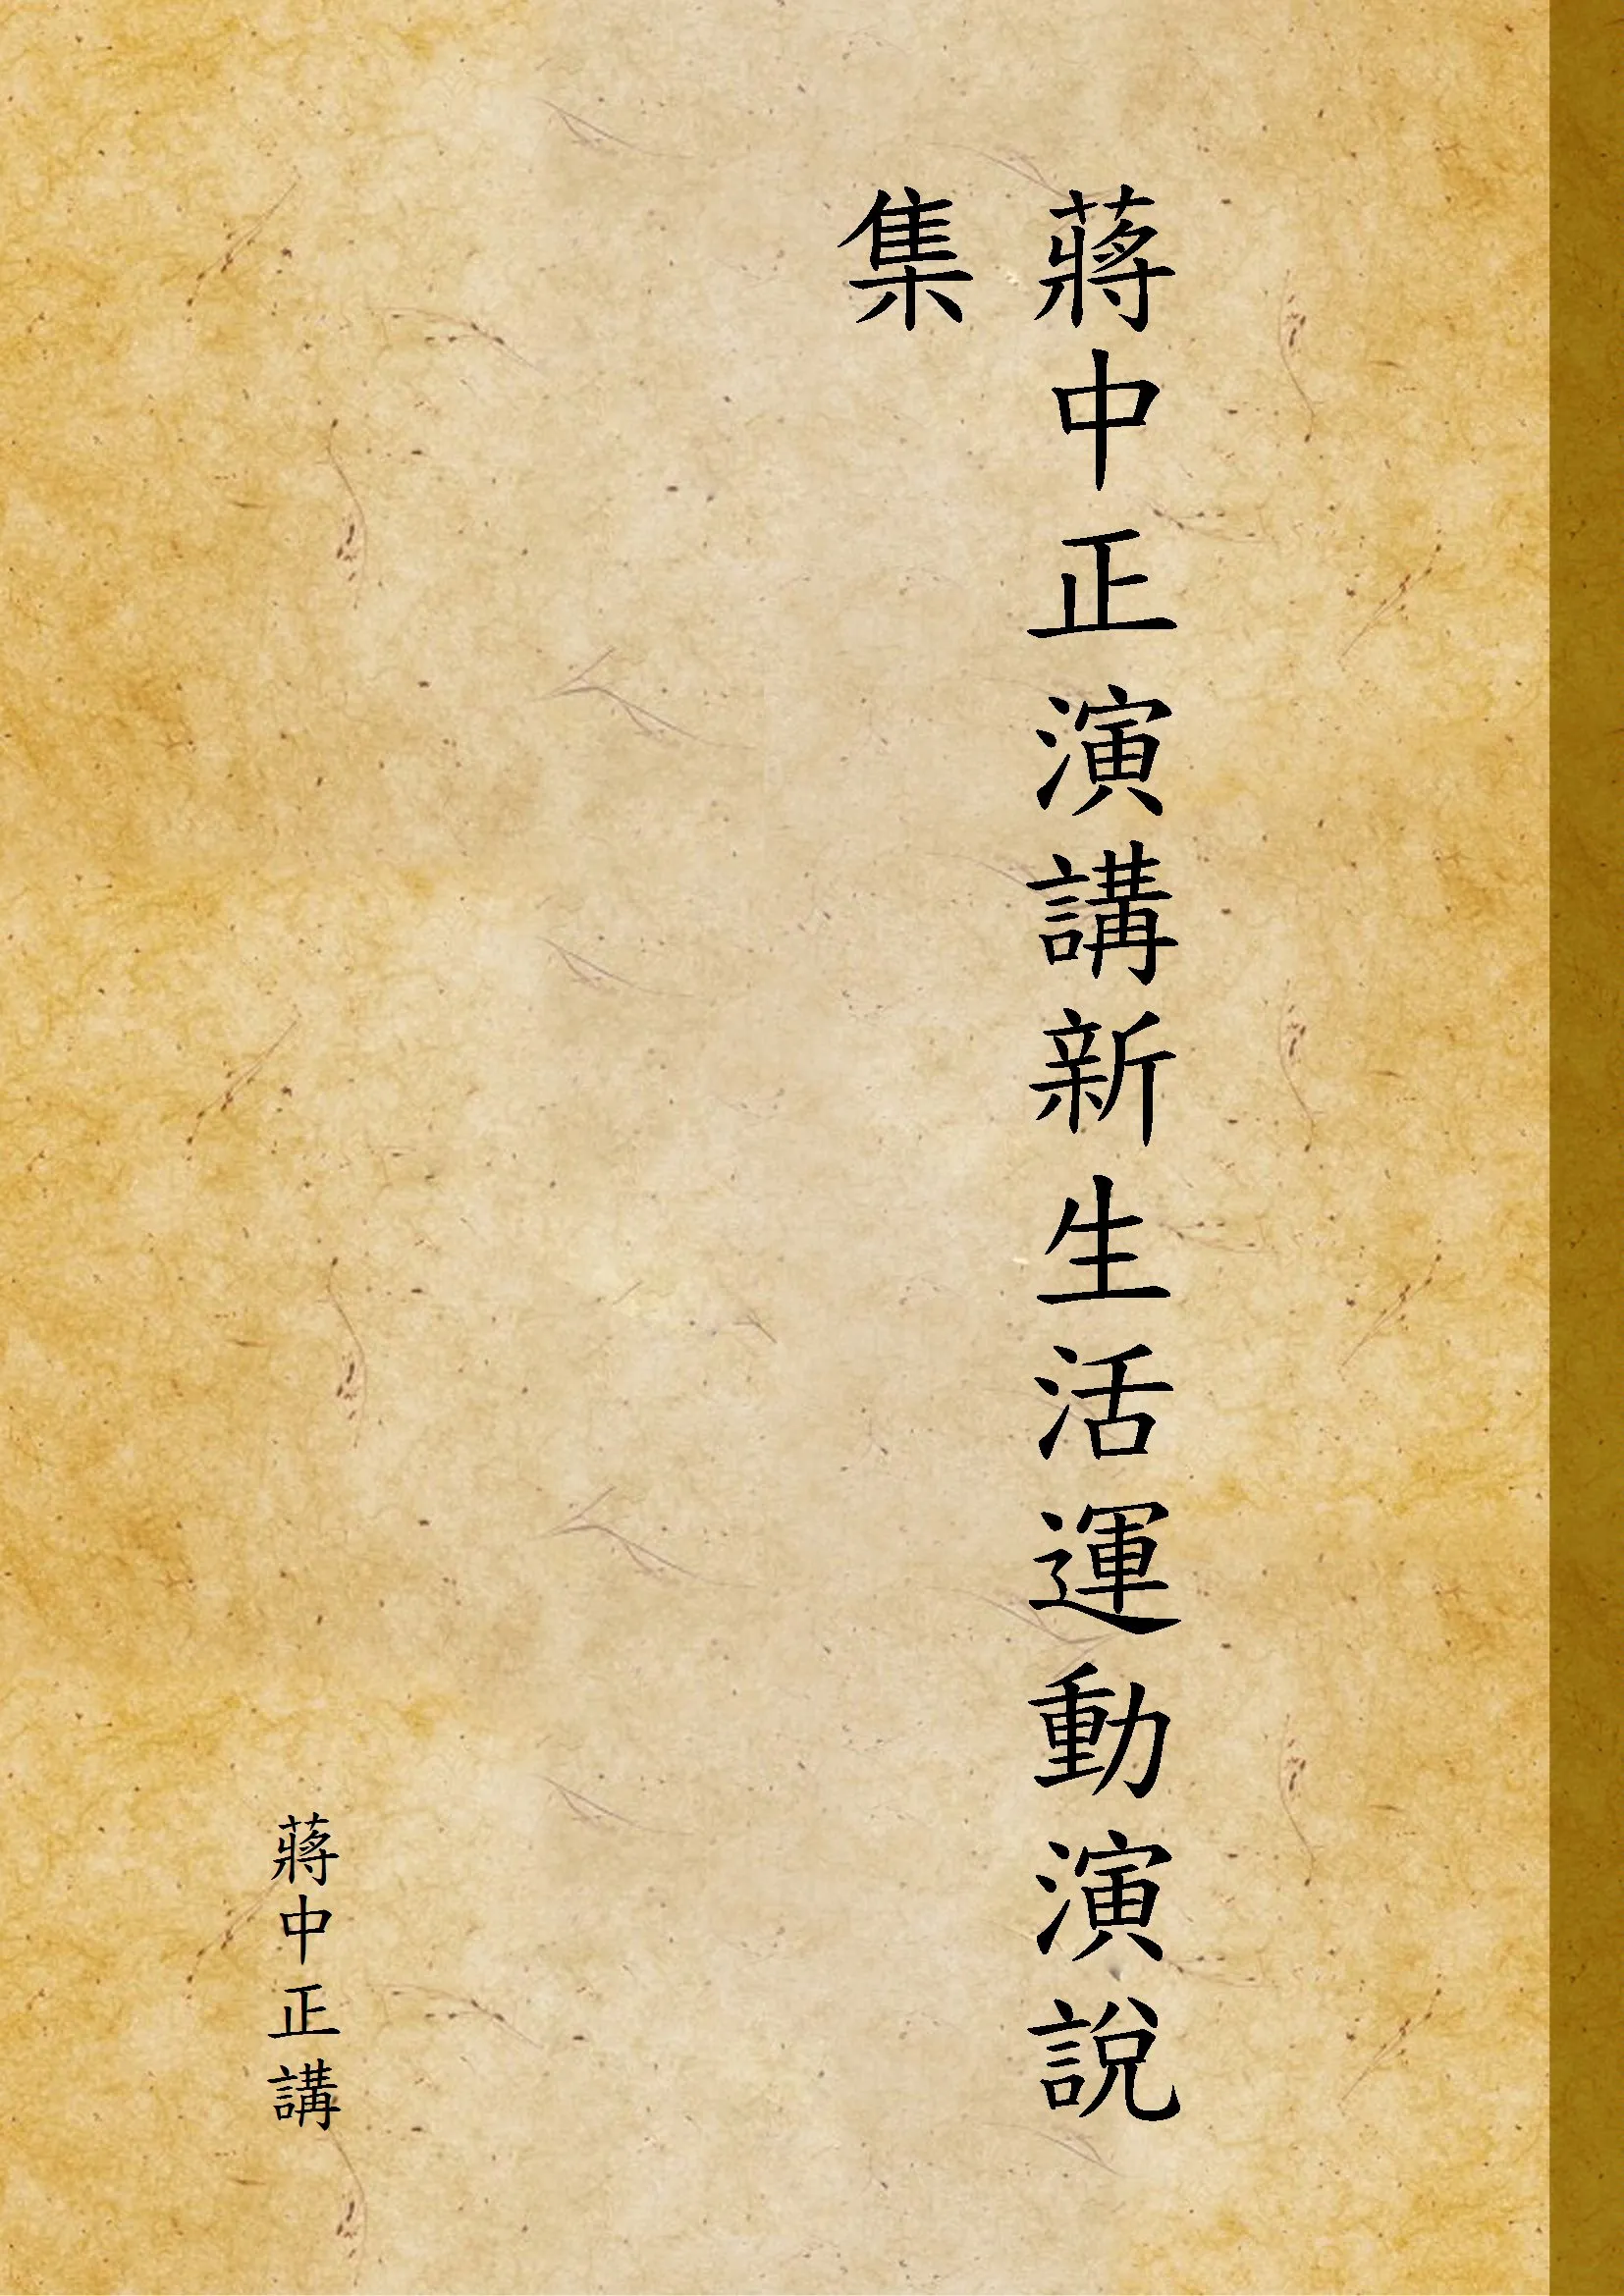 蔣中正演講新生活運動演說
集
蔣中正講